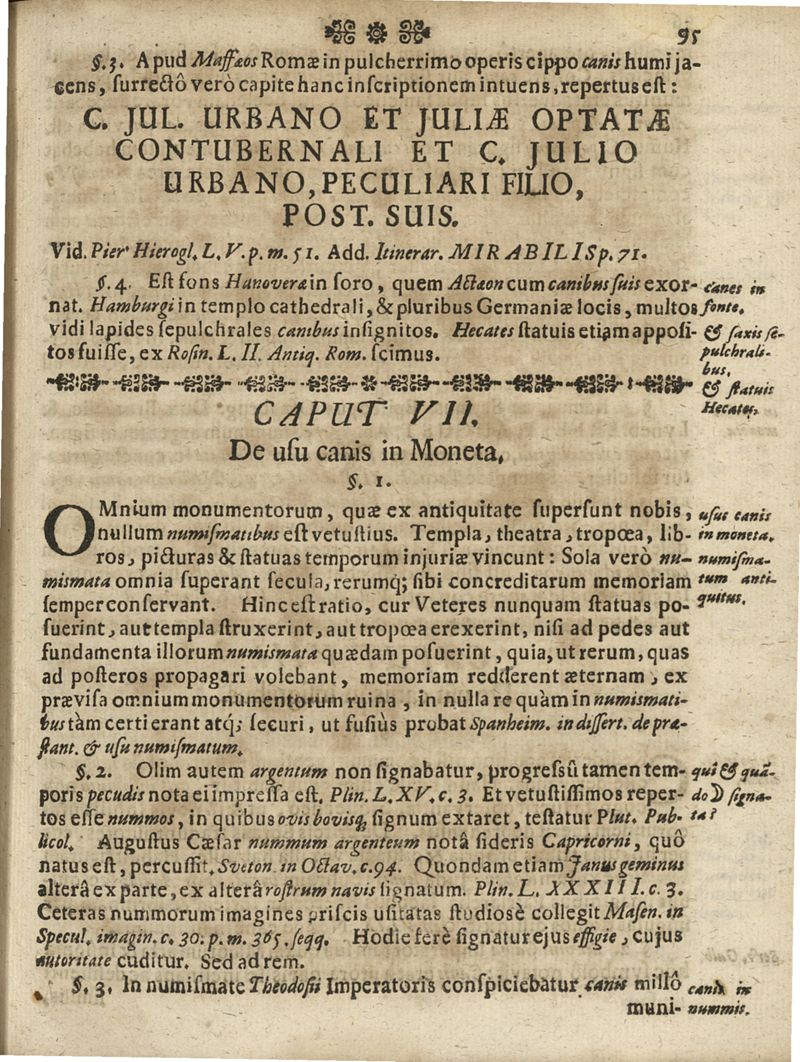 95
§. 3. Apud Maffæos Romæ in pulcherrimo operis cippo canis humi ja-
cens, surrectô verò capite hanc inscriptionem intuens, repertus est:
C. JUL. URBANO ET JULIÆ OPTATÆ
CONTUBERNALI ET C. JULIO
URBANO, PECULIARI FILIO,
POST. SUIS.
Vid. Pier Hierogl. L. V. p. m. 51. Add. Itinerar. MIRABILIS p. 71.
§. 4. Est fons Hanoveræ in foro, quem Actæon cum canibus suis exor-
nat. Hamburgi in templo cathedrali, & pluribus Germaniæ locis, multos
vidi lapides sepulchrales canibus insignitos. Hecates statuis etiam apposi-
tos fuisse, ex Rosin. L. II. Antiq. Rom. scimus.
canes in
fonte.
& saxis se-
pulchrali-
bus,
& statuis
Hecates.
CAPUT VII.
De usu canis in Moneta.
§. 1.
OMnium monumentorum, quæ ex antiquitate supersunt nobis,
nullum numismatibus est vetustius. Templa, theatra, tropœa, lib-
ros, picturas & statuas temporum injuriæ vincunt: Sola verò nu-
mismata omnia superant secula, rerumq; sibi concreditarum memoriam
semper conservant. Hinc est ratio, cur Veteres nunquam statuas po-
suerint, aut templa struxerint, aut tropœa erexerint, nisi ad pedes aut
fundamenta illorum numismata quædam posuerint, quia, ut rerum, quas
ad posteros propagari volebant, memoriam redderent æternam, ex
prævisa omnium monumentorum ruina, in nulla re quàm in numismati-
bus tàm certi erant atq; securi, ut fusiùs probat Spanheim. in dissert. de præ-
stant. & usu numismatum.
usus canis
in moneta.
numisma-
tum anti-
quitus.
§. 2. Olim autem argentum non signabatur, progressû tamen tem-
poris pecudis nota ei impressa est. Plin. L. XV. c. 3. Et vetustissimos reper-
tos esse nummos, in quibus ovis bovisq; signum extaret, testatur Plut. Pub-
licol. Augustus Cæsar nummum argenteum notâ sideris Capricorni, quô
natus est, percussit. Sveton in Octav. c. 94. Quondam etiam Janus geminus
alterâ ex parte, ex alterâ rostrum navis signatum. Plin. L. XXXIII. c. 3.
Ceteras nummorum imagines priscis usitatas studiosè collegit Masen. in
Specul. imagin. c. 30. p. m. 365. seqq. Hodie ferè signatur ejus effigie, cujus
autoritate cuditur. Sed ad rem.
qui & quā-
do signa-
ta?
§. 3. In numismate Theodosii Imperatoris conspiciebatur canis millô
muni-
canis in
nummis.